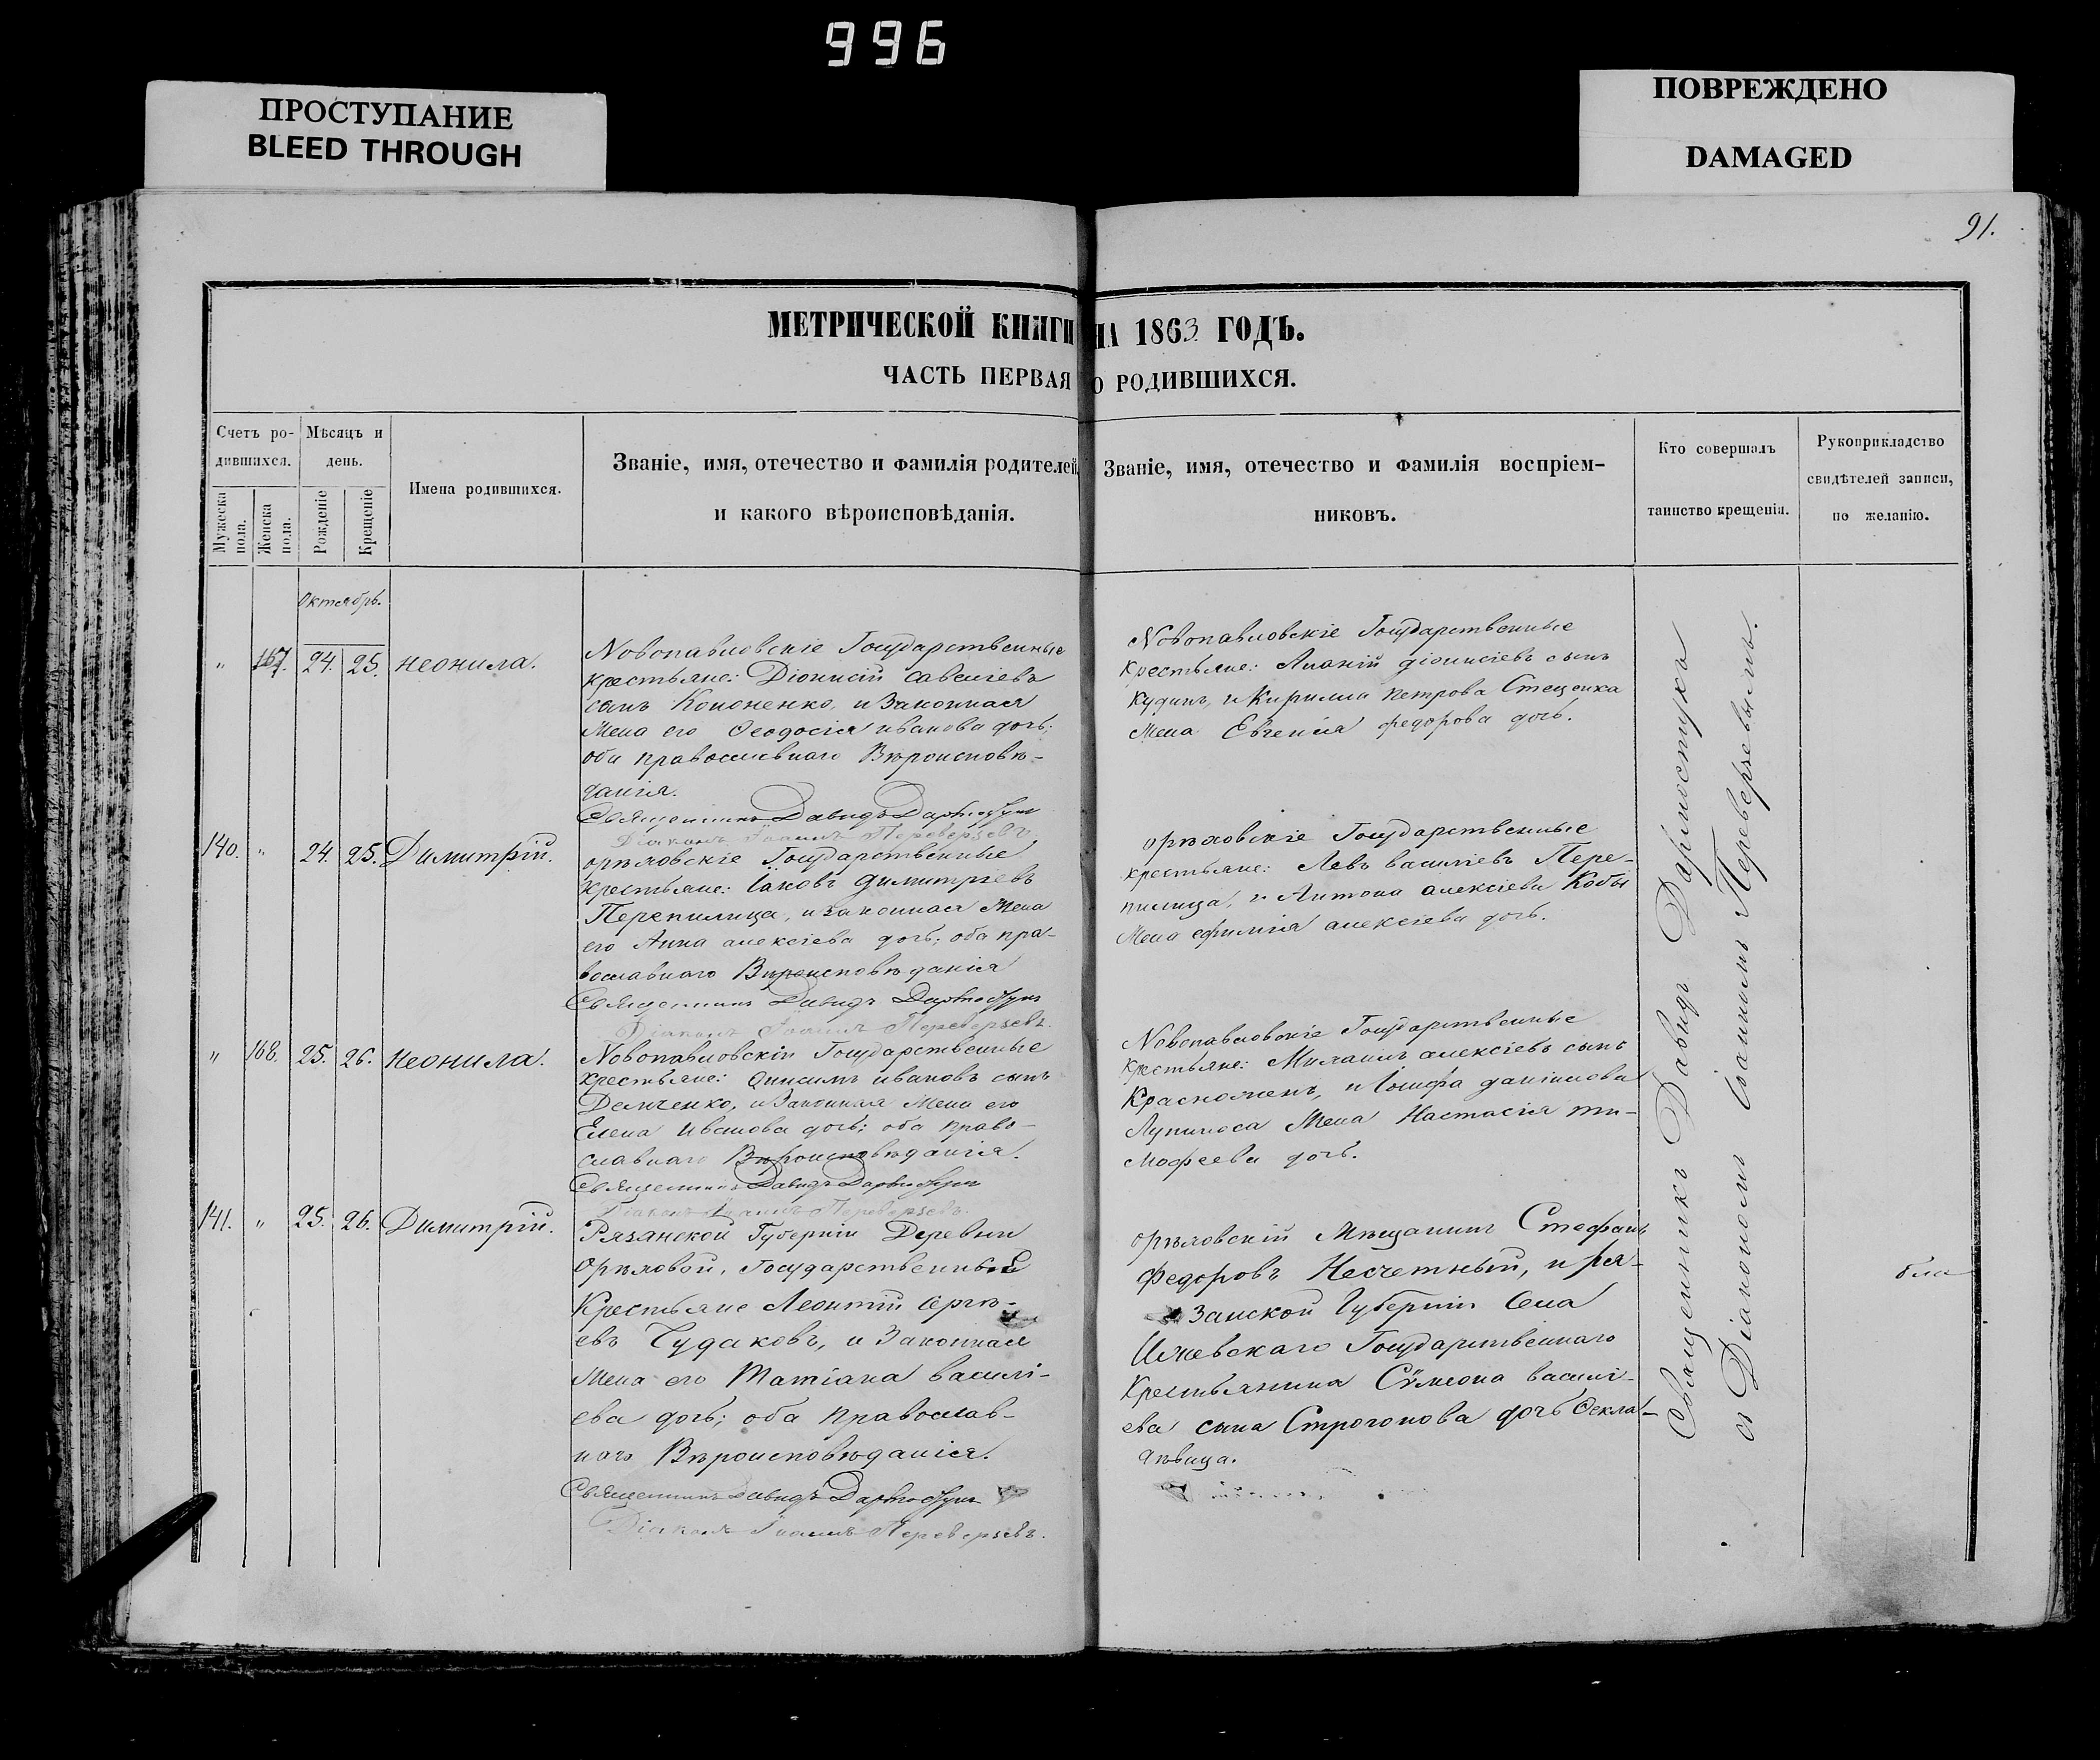 996
ПРОСТУПАНИЕ
BLEED THROUGH
ПОВРЕЖДЕНО
DAMAGED
91.
МЕТРИЧЕСКОЙ КНИГИ НА 1863 ГОДЪ.
ЧАСТЬ ПЕРВАЯ О РОДИВШИХСЯ.
Счетъ ро-
дившихся.
Мужеска пола.
Женска пола.
Мѣсяцъ и
день.
Рожденіе
Крещеніе
Имена родившихся.
Званіе, имя, отечество и фамилія родителей
и какого вѣроисповѣданія.
Званіе, имя, отечество и фамилія воспріем-
никовъ.
Кто совершалъ
таинство крещенія.
Рукоприкладство
свидѣтелей записи,
по желанію.
Октябрь.
" 167. 24. 25. Неонила.
Новопавловскіе Государственные
крестьяне: Діонисій Савеліевъ
сынъ Кононенко, и Законная
Жена его Ѳеодосія Иванова дочь;
оба православнаго Вѣроисповѣ-
данія.
Священникъ Давидъ
Діаконъ Іоаннъ Переверзевъ
Новопавловскіе Государственные
крестьяне: Ананій Діонисіевъ сынъ
Кудинъ, и Кирилла Петрова Стеценка
Жена Евгенія Федорова дочь.
140. " 24. 25. Димитрій.
Орѣховскіе Государственные
крестьяне: Іаковъ Димитріевъ
Перепилица, и законная Жена
его Анна Алексіева дочь; оба пра-
вославнаго Вѣроисповѣданія
Священникъ Давидъ
Діаконъ Іоаннъ Переверзевъ.
Орѣховскіе Государственные
крестьяне: Левъ Василіевъ Пере-
пилица, и Антона Алексіева Кобы
Жена Ефимія Алексіева дочь.
" 168. 25. 26. Неонила.
Новопавловскіи Государственные
крестьяне: Онисимъ Ивановъ сынъ
Демченко, и Законная Жена его
Елена Иванова дочь; оба право-
славнаго Вѣроисповѣданія.
Священникъ Давидъ
Діаконъ Іоаннъ Переверзевъ.
Новопавловскіе Государственные
крестьяне: Михаилъ Алексіевъ сынъ
Красножонъ, и Іосифа Даніилова
Лупиноса Жена Настасія Ти-
мофеева дочь.
141. " 25. 26. Димитрій.
Рязанской Губерніи Деревни
Орѣховой, Государственные
Крестьяне Леонтій Сергѣ-
евъ Чудаковъ, и Законная
Жена его Татіана Василі-
ева дочь; оба Православ-
наго Вѣроисповѣданія.
Священникъ Давидъ
Діаконъ Іоаннъ Переверзевъ.
Орѣховскій Мѣщанинъ Стефанъ
Федоровъ Несчетный, и Ря-
занской Губерніи Села
Ижевскаго Государственнаго
Крестьянина Сѵмеона Василі-
ева сына Строгонова дочь Ѳекла
дѣвица.
Священникъ Давидъ
съ Діакономъ Іоанномъ Переверзевымъ.